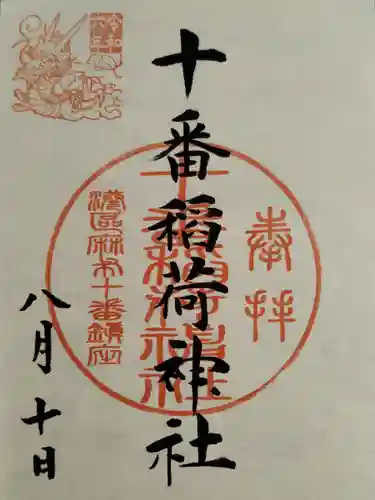 奉拝
十番稲荷神社
十番稲荷神社
港區麻布十番鎮座
八月十日
令和六年